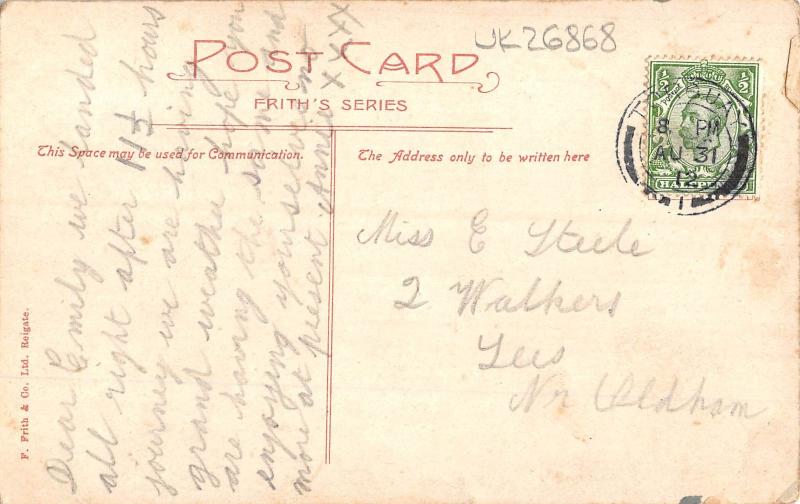 UK26868
POST CARD
FRITH'S SERIES
This Space may be used for Communication.
The Address only to be written here
F. Frith & Co. Ltd. Reigate.
Dear Emily we landed
all right after 11½ hours
journey we are having
grand weather hope you
are having the same and
enjoying yourselves no
more at present Annie xxxx
Miss E Steele
2 Walkers
Lees
Nr Oldham
½
½
POSTAGE
HALFPENNY
8 PM
AU 31
12